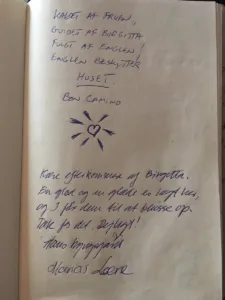 KALDET AF FRUEN,
GUIDET AF BIRGITTA
FULGT AF ENGLEN!
ENGLEN BESKYTTER
HUSET.
BON CAMINO
Kære efterkommere af Birgitta.
En glød og en glæde er lagt her,
og I får dem til at blusse op.
Tak for det.
Hans